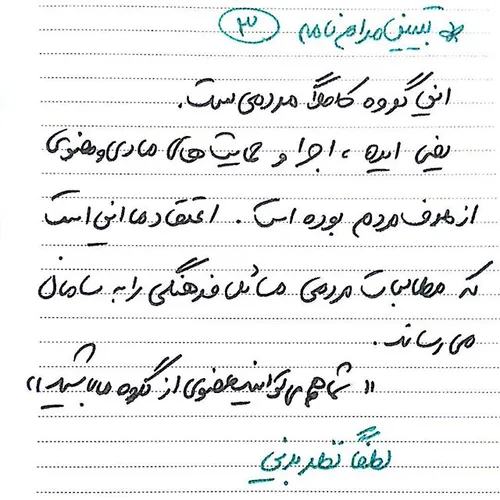 * تبیین مرام نامه ۳
این گروه کاملاً مردمی ست.
یعنی ایده، اجرا و حمایت های مادی و معنوی
از طرف مردم بوده است. اعتقاد ما این است
که مطالبات مردمی مسائل فرهنگی را به سامان
می رساند.
"شما هم می توانید عضوی از گروه ما باشید"
لطفاً نظر بدین